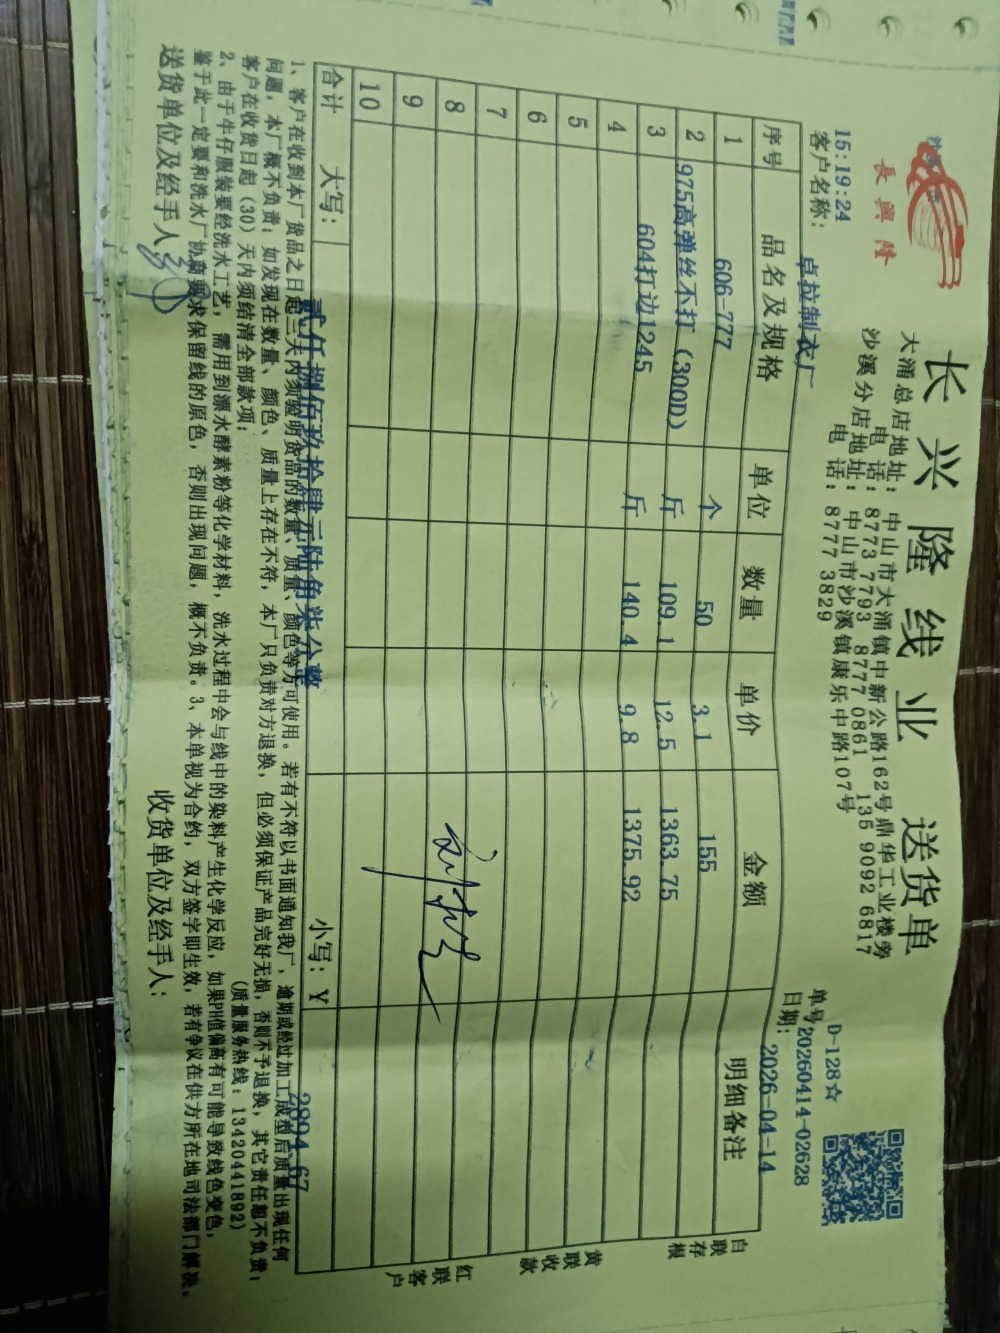 長興隆
长兴隆线业 送货单
大涌总店地址：中山市大涌镇中新公路162号鼎华工业楼旁
电话：8773 7793 8777 0861 135 9092 6817
沙溪分店地址：中山市沙溪镇康乐中路107号
电话：8777 3829
D-128☆
单号20260414-02628
日期：2026-04-14
15:19:24
客户名称：卓拉制衣厂
序号 品名及规格 单位 数量 单价 金额 明细备注
1 606-777 个 50 3.1 155
2 975高弹丝不打（300D） 斤 109.1 12.5 1363.75
3 604打边1245 斤 140.4 9.8 1375.92
4
5
6
7
8
9
10
合计 大写：贰仟捌佰玖拾肆元陆角柒分整 小写：￥ 2894.67
白联存根
黄联收款
红联客户
1、客户在收到本厂货品之日起三天内须验明货品的数量、质量、颜色等方可使用。若有不符以书面通知我厂，逾期或经过加工成型后质量出现任何
问题，本厂概不负责；如发现在数量、颜色、质量上存在不符，本厂只负责对方退换，但必须保证产品完好无损，否则不予退换，其它责任恕不负责；
客户在收货日起（30）天内须结清全部款项； （质量服务热线：13420441892）
2、由于牛仔服装要经洗水工艺，需用到漂水酵素粉等化学材料，洗水过程中会与线中的染料产生化学反应，如果PH值偏高有可能导致线色变色，
鉴于此一定要和洗水厂协商要求保留线的原色，否则出现问题，概不负责。3、本单视为合约，双方签字即生效，若有争议在供方所在地司法部门解决。
送货单位及经手人： 收货单位及经手人：